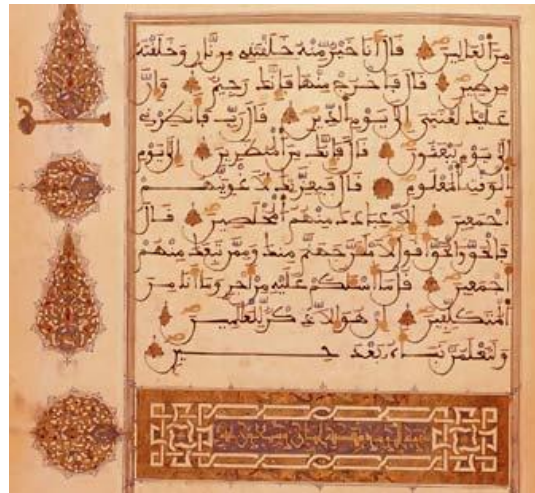 من العلين قال أنا خير منه خلقتني من نار وخلقته
من طين قال فاخرج منها فإنك رجيم وإن
عليك لعنتي إلى يوم الدين قال رب فأنظرني
إلى يوم يبعثون قال فإنك من المنظرين إلى يوم
الوقت المعلوم قال فبعزتك لأغوينهم
أجمعين إلا عبادك منهم المخلصين قال
فالحق والحق أقول لأملأن جهنم منك وممن تبعك منهم
أجمعين قل ما أسئلكم عليه من أجر وما أنا من
المتكلفين إن هو إلا ذكر للعلمين
ولتعلمن نبأه بعد حين